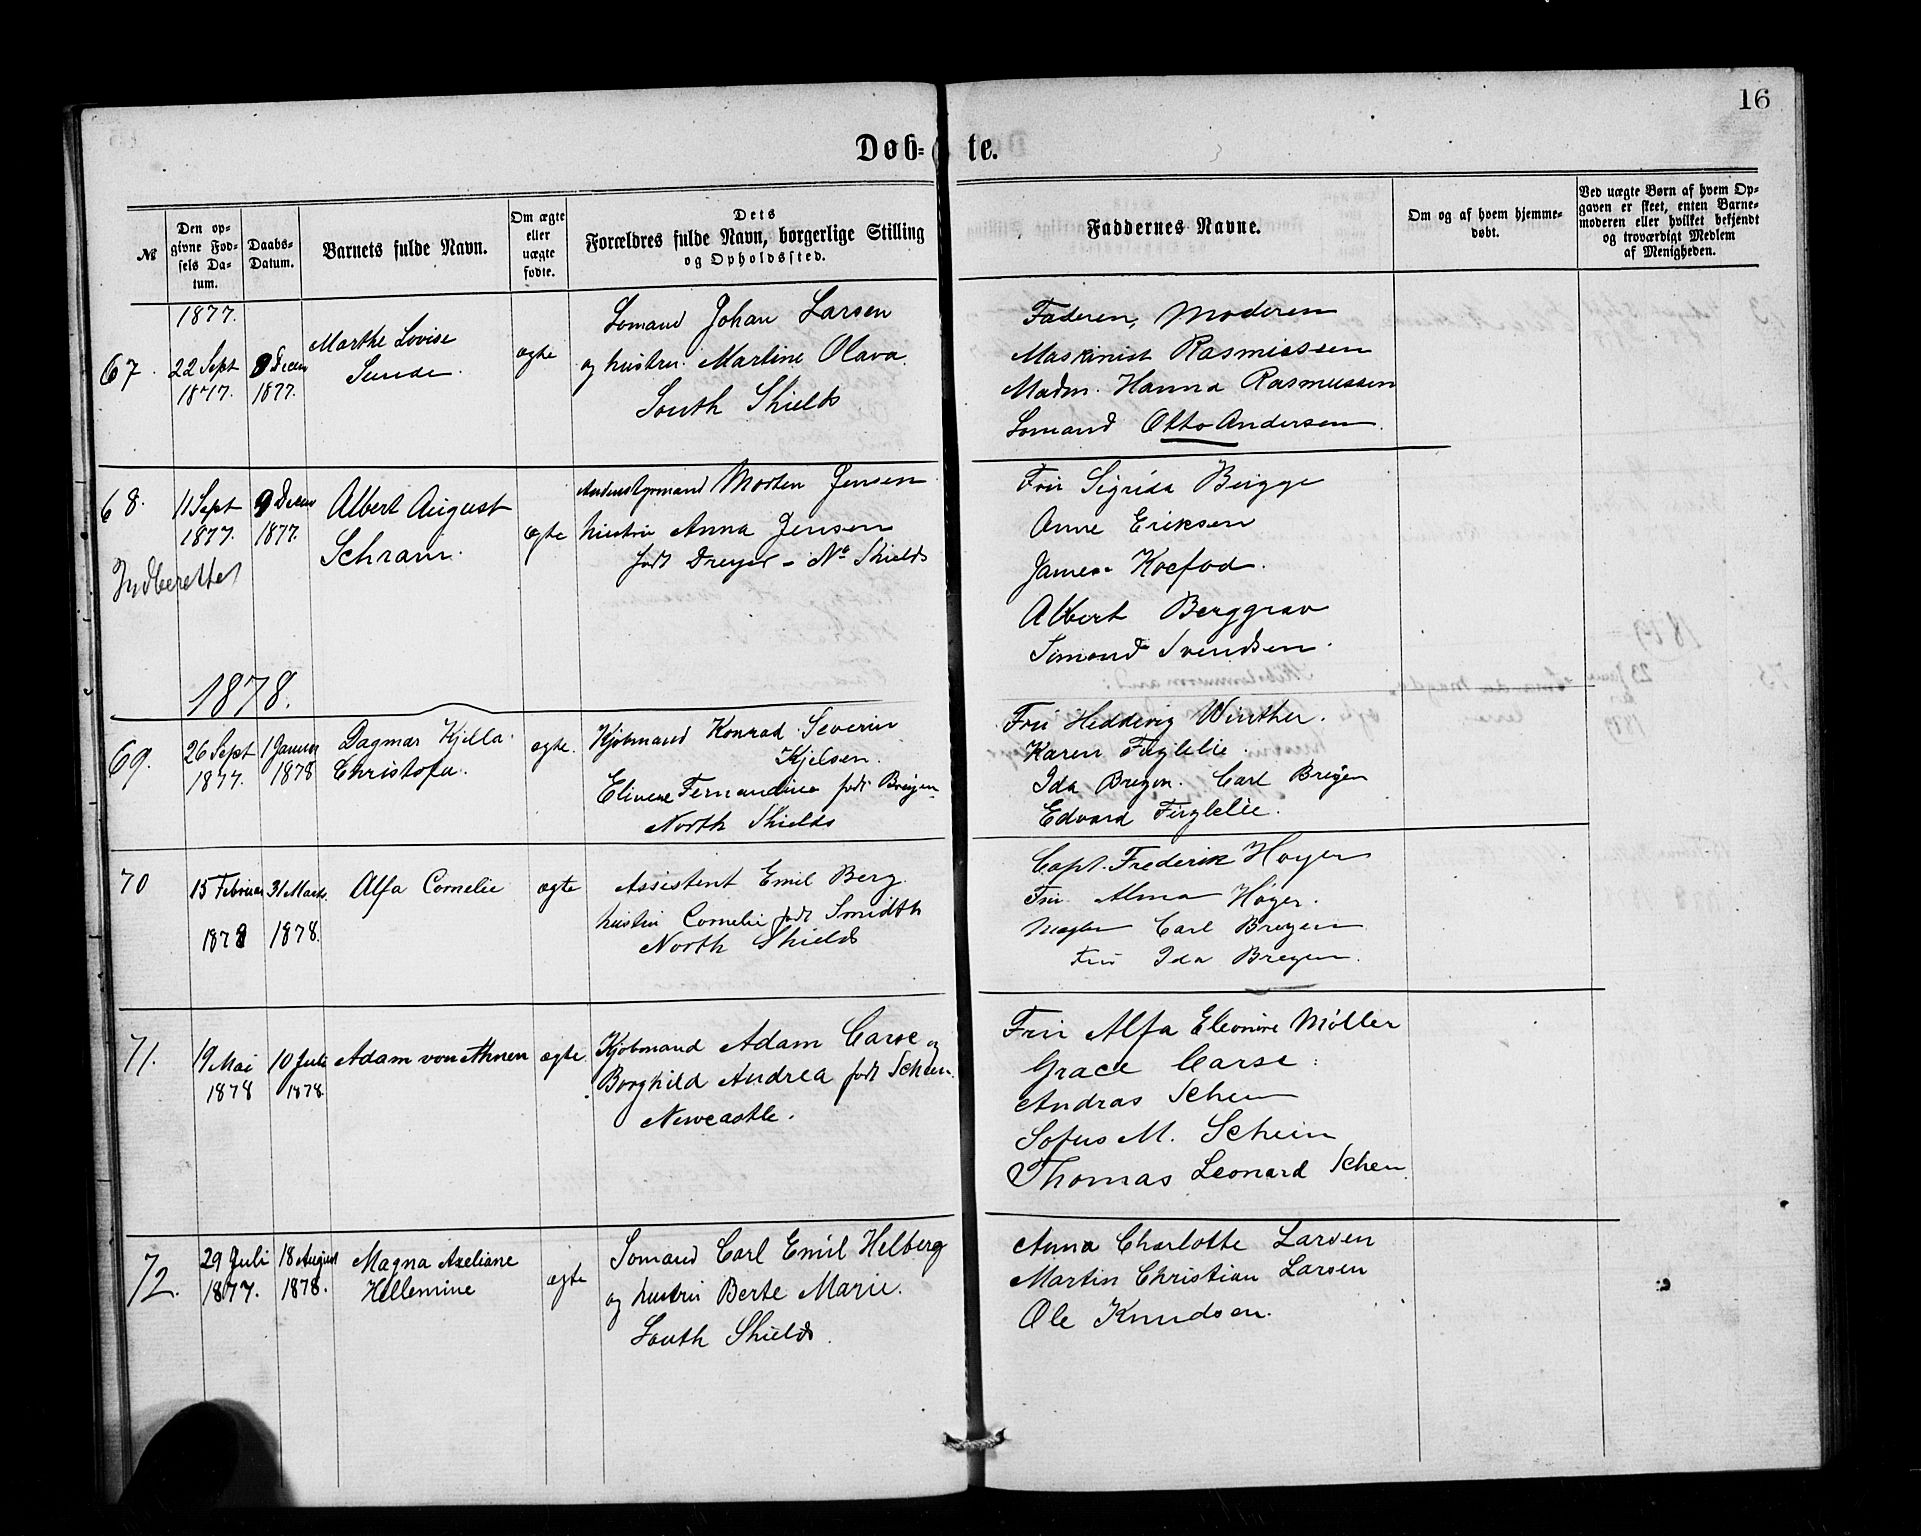 16
Døb= te.
№
Den op-
givne Fød-
sels Da-
tum.
Daabs-
Datum.
Barnets fulde Navn.
Om ægte
eller
uægte
fødte.
Dets
Forældres fulde Navn, borgerlige Stilling
og Opholdssted.
Faddernes Navne.
Om og af hvem hjemme-
døbt.
Ved uægte Børn af hvem Op-
gaven er skeet, enten Barne-
moderen eller hvilket bekjendt
og troværdigt Medlem
af Menigheden.
1877.
67.
22 Sept
1877.
9 Decem
1877.
Marthe Lovise
Sunde.
ægte
Sømand Johan Larsen
og hustru Martine Olava
South Shields
Faderen, Moderen
Maskinist Rasmussen
Madm. Hanna Rasmussen
Sømand Otto Andersen.
68.
11 Sept
1877.
9 Decem
1877.
Indberettet
Albert August
Schram.
ægte
Morten Jensen
hustru Anna Jensen
født Dreyer - No Shields
Fru Sigrida Brigge
Anne Eriksen
James Koefod.
Albert Berggrav
Simond Svendsen.
1878.
69.
26 Sept
1877.
1 Januar
1878
Dagmar Kjella
Christofa.
ægte.
Kjøbmand Konrad Severin
Kjelsen.
Elivene Fernandine født Breijen
North Shields
Fru Heddevig Winther.
Karen Fuglelie.
Ida Breijen. Carl Breijen
Edvard Fuglelie.
70
15 Februar
1878
31 Marts
1878.
Alfa Cornelie
ægte
Assistent Emil Berg.
hustru Cornelie født Smidth
North Shields
Capt. Frederik Høyer
Fru Alma Høyer.
Mægler Carl Breyen
Fru Ida Breyen.
71.
19 Mai
1878
10 Juli
1878.
Adam von Ahnen
ægte.
Kjøbmand Adam Carse og
Borghild Andrea født Scheen.
Newcastle.
Fru Alfa Eleonore Møller
Grace Carse.
Andras Schen
Sofus M. Schein
Thomas Leonard Schen.
72.
29 Juli
1877.
18 August
1878.
Magna Axeliane
Hellemine
ægte
Sømand Carl Emil Helberg
og hustru Berte Marie.
South Shields.
Anna Charlotte Larsen
Martin Christian Larsen
Ole Knudsen.